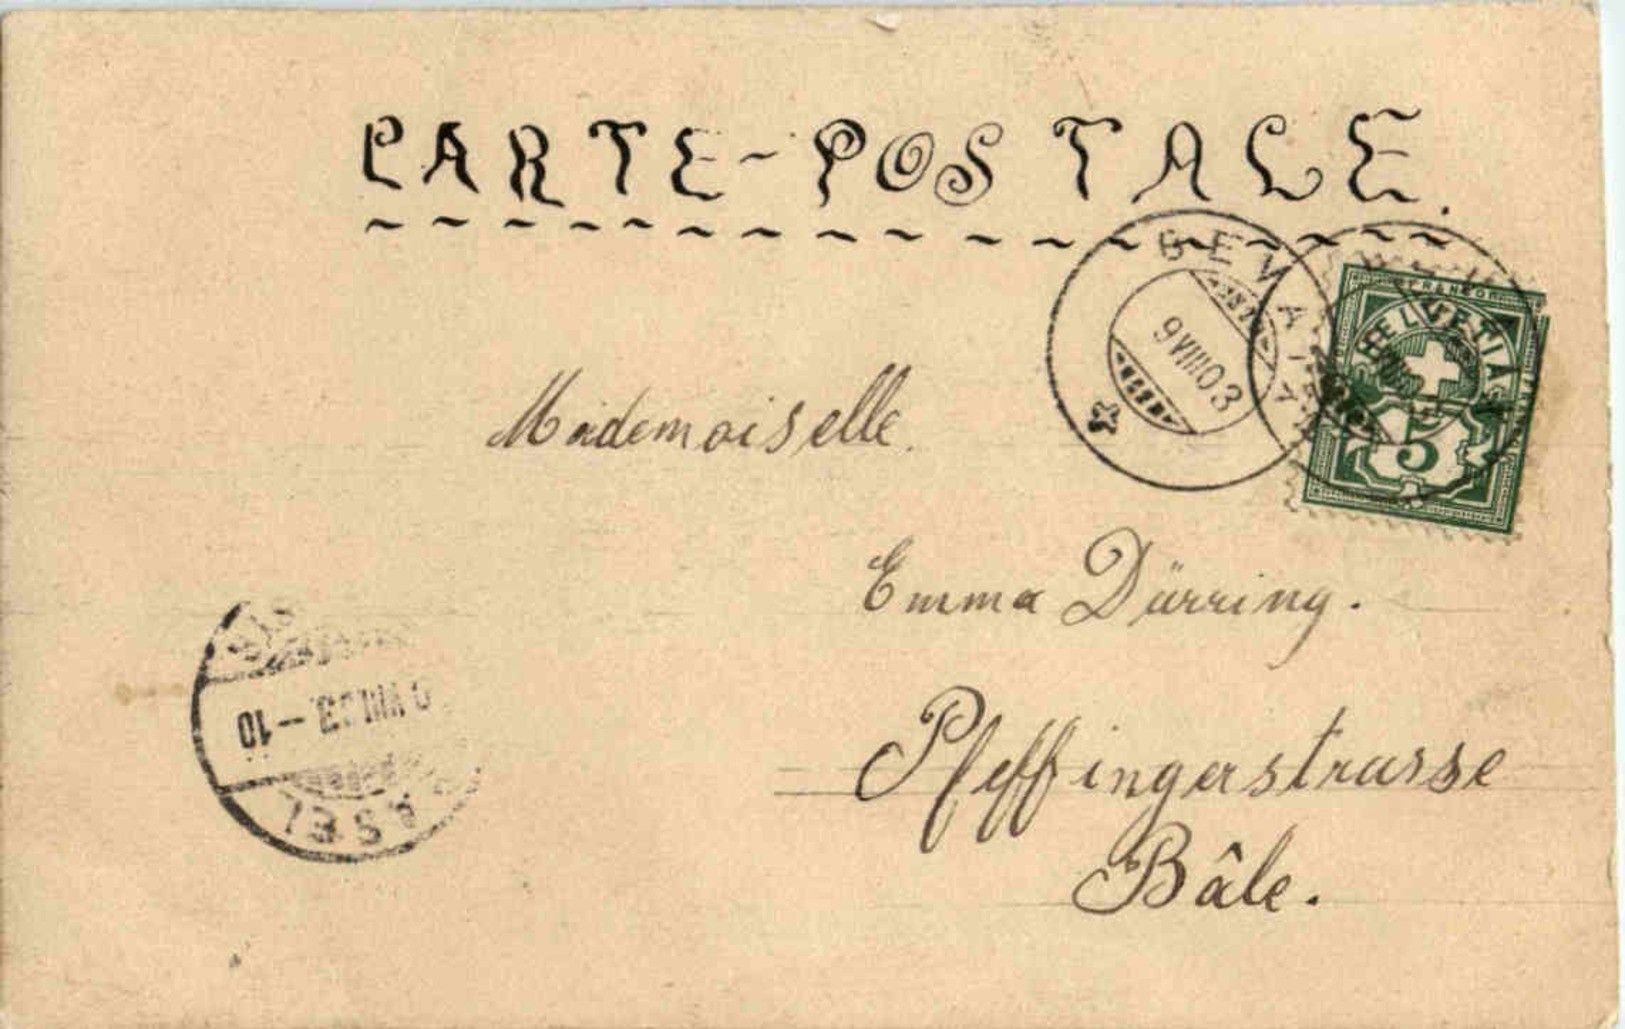 CARTE-POSTALE.
BEVAIX
9 VIII 03
FRANCO
HELVETIA
5
Mademoiselle.
Emma Dürring.
Pfeffingerstrasse
Bâle.
VIII.03.-10
BASEL